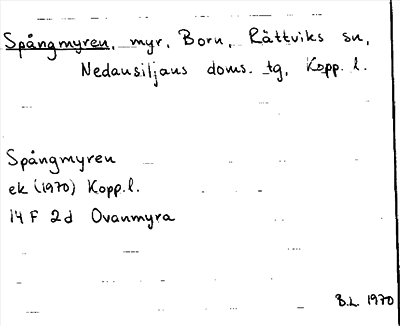 Spångmyren, myr, Born, Rättviks sn,
Nedansiljans doms. tg, Kopp. l.
Spångmyren
ek (1970) Kopp.l.
14 F 2d Ovanmyra
B.L. 1970